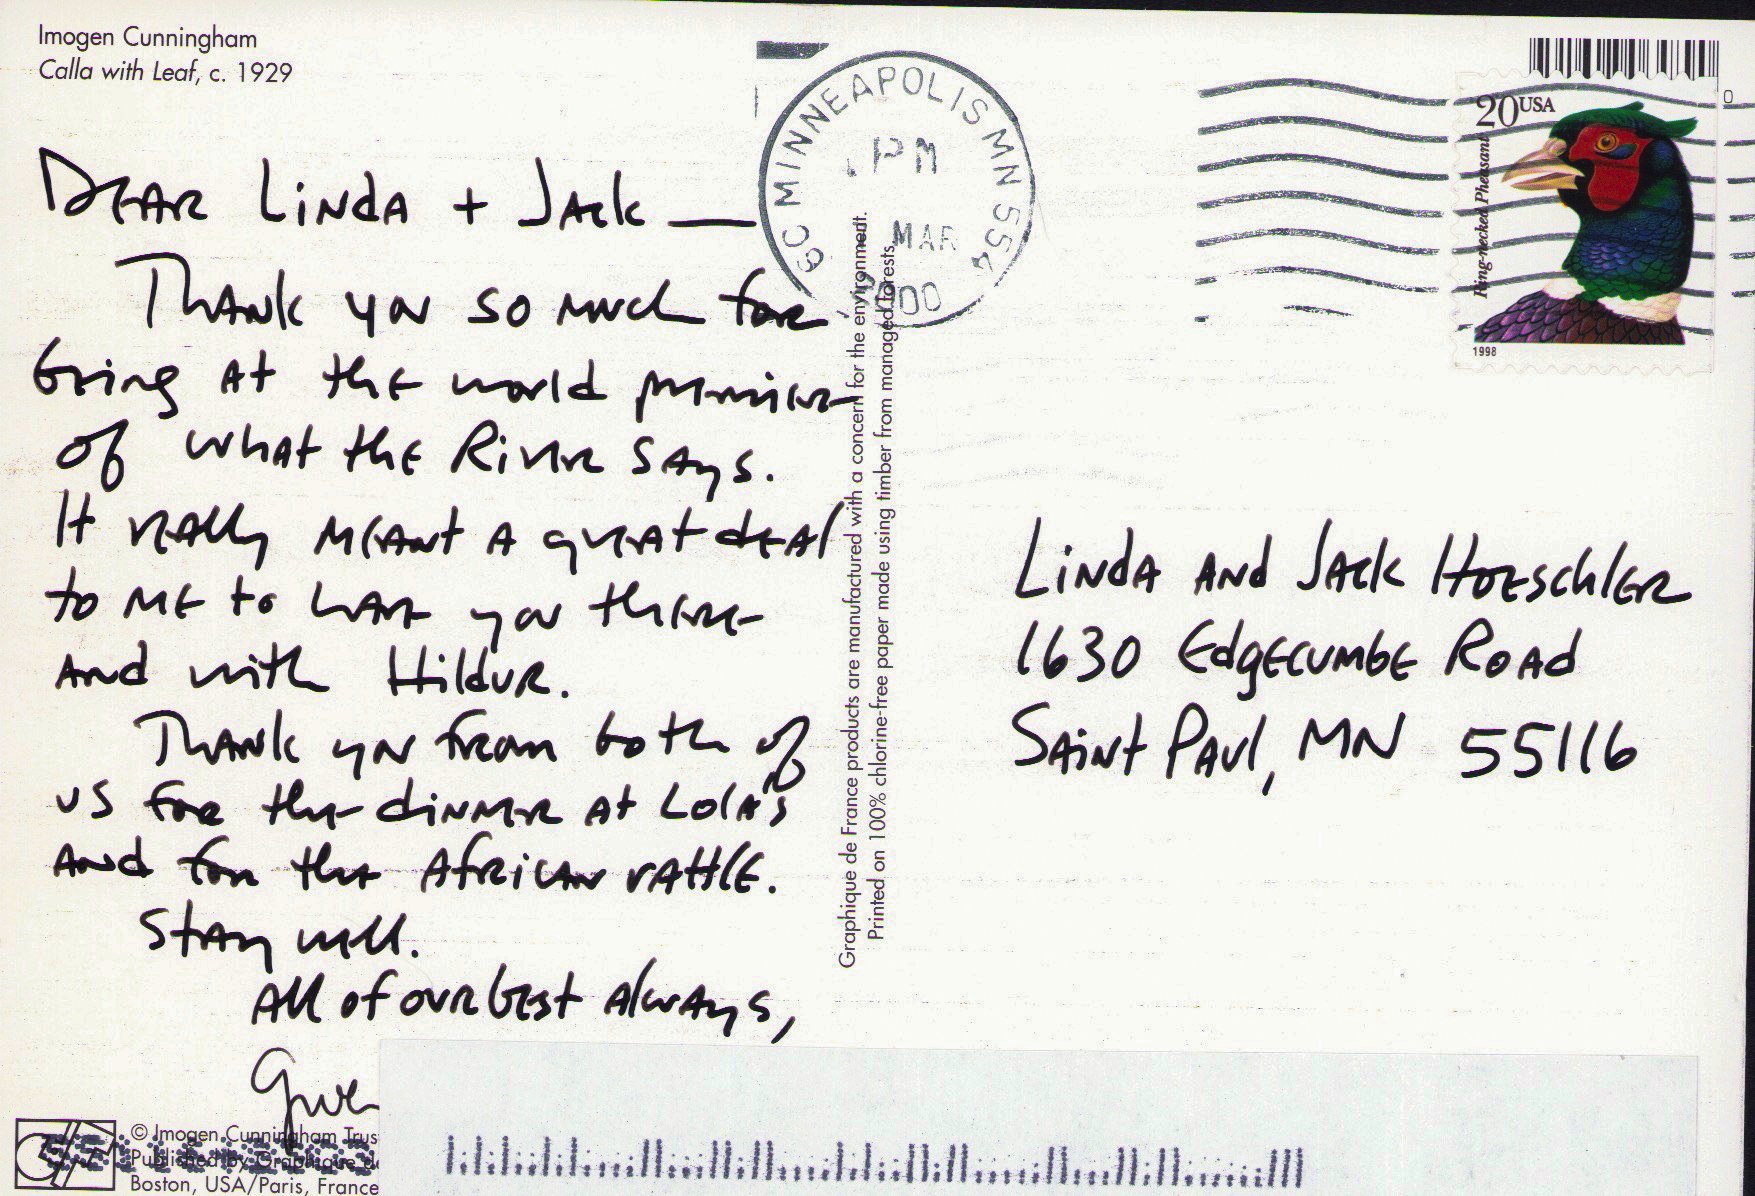 Imogen Cunningham
Calla with Leaf, c. 1929
DEAR Linda + Jack —
Thank you so much for
being at the world premiere
of what the River says.
It really meant a great deal
to me to have you there
and with Hildur.
Thank you from both of
us for the dinner at Lola's
and for the African rattle.
Stay well.
All of our best always,
Gwen
© Imogen Cunningham Trus
Published by Graphique de
Boston, USA/Paris, France
Graphique de France products are manufactured with a concern for the environment.
Printed on 100% chlorine-free paper made using timber from managed forests.
MINNEAPOLIS MN 554
PM
MAR
2000
20 USA
Ring-necked Pheasant
1998
Linda and Jack Hoeschler
1630 Edgecumbe Road
Saint Paul, MN 55116